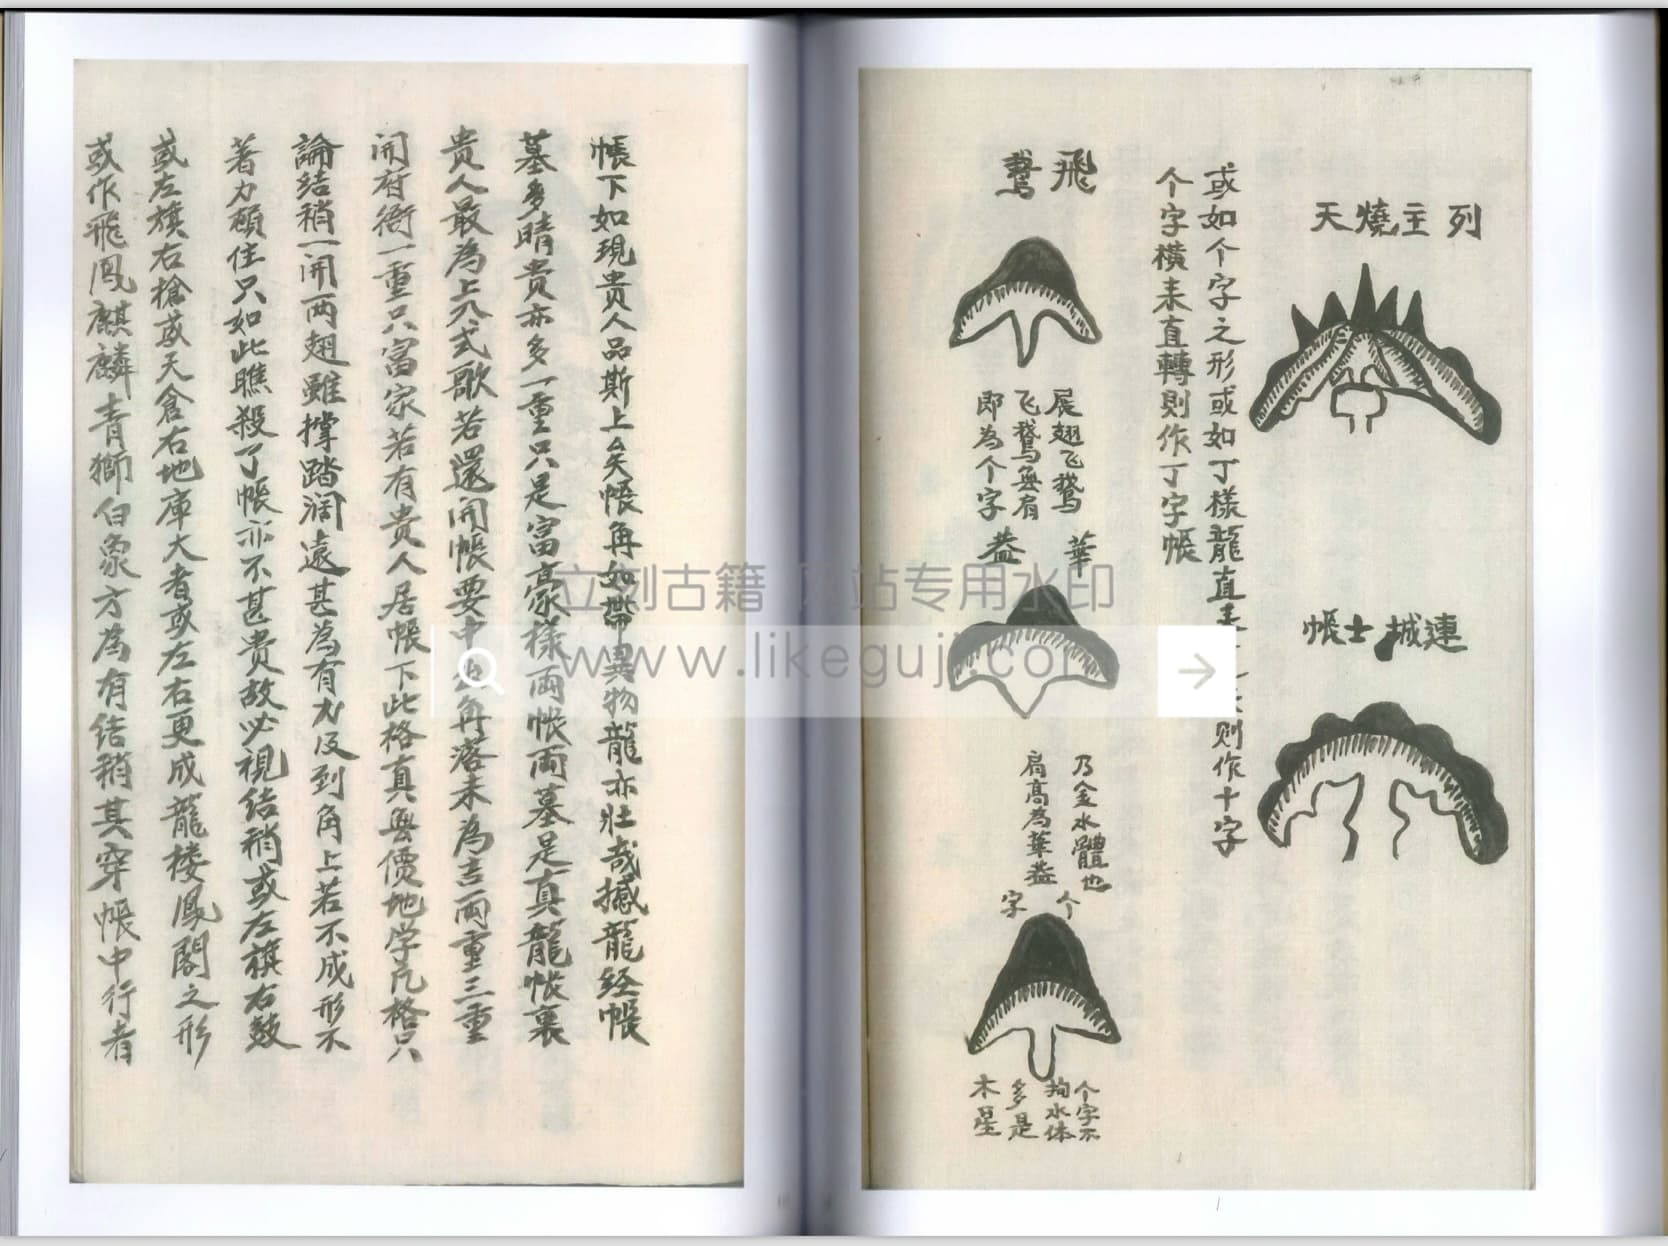 列主燒天
連城士帳
或如个字之形或如丁樣龍直
則作十字
个字橫未直轉則作丁字帳
飛鵞
展翅飞鵞
飞鵞無肩
即為个字
華盖
乃金水體也
肩高為華盖
个字
个字不
拘水体
多是
木星
帳下如現貴人品斯上矣帳再如帶異物龍亦壯哉撼龍经帳
墓多晴貴亦多一重只是富豪樣両帐両墓是真龍帐裏
贵人最為上不式歌若還開帳要中出角落未為吉両重三重
開府衙一重只富家若有贵人居帳下此格真無價地学凡格只
論结稍一開両翅雖撑踏濶遠甚為有力及到角上若不成形不
著力顧住只如此瞧殺了帳亦不甚貴故必視结稍或左旗右鼓
或左旗右槍或天倉右地庫大者或左右更成龍楼鳳閣之形
或作飛鳳麒麟青獅白象方為有结稍其穿帳中行者
立刻古籍 网站专用水印
www.likeguji.com